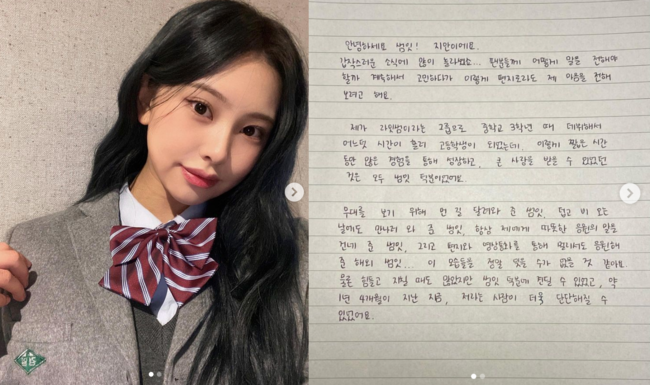 안녕하세요 범잇! 지안이에요.
갑작스러운 소식에 많이 놀라셨죠... 팬분들께 어떻게 말을 전해야
할까 계속해서 고민하다가 이렇게 편지로라도 제 마음을 전해
보려고 해요.
제가 라임범이라는 그룹으로 중학교 3학년 때 데뷔해서
어느덧 시간이 흘러 고등학생이 되었는데, 이렇게 짧은 시간
동안 많은 경험을 통해 성장하고, 큰 사랑을 받을 수 있었던
것은 모두 범잇 덕분이었어요.
무대를 보기 위해 먼 길 달려와 준 범잇, 덥고 비 오는
날에도 만나러 와 준 범잇, 항상 제에게 따뜻한 응원의 말을
건네 준 범잇, 그리고 편지와 영상통화를 통해 멀리서도 응원해
준 해외 범잇... 이 모습들을 정말 잊을 수가 없을 것 같아요.
물론 힘들고 지칠 때도 많았지만 범잇 덕분에 견딜 수 있었고, 약
1년 4개월이 지난 지금, 저라는 사람이 더욱 단단해질 수
있었어요.